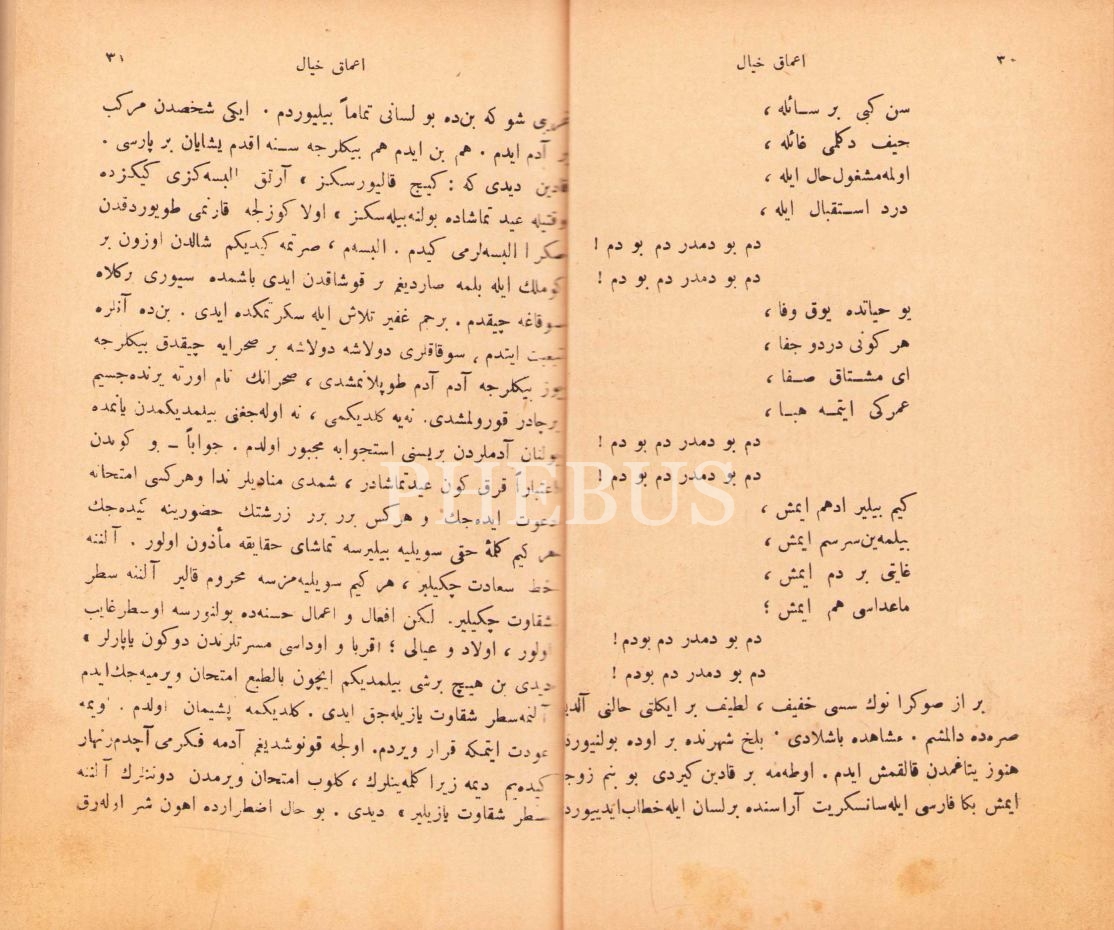 ٣٠
اعماق خیال
سن کبی بر سـائله ،
حیف دکلمی غائله ،
اولمه مشغول حال ایله ،
درد اسـتقبال ایله ،
دم بو دمدر دم بو دم !
دم بو دمدر دم بو دم !
بو حیاتده یوق وفا ،
هر کونی دردو جفا ،
ای مشـتاق صـفا ،
عمرکی ایتمـه هبـا ،
دم بو دمدر دم بو دم !
دم بو دمدر دم بو دم !
کیم بیلیر ادهم ایمش ،
بیلمه‌ین سرسم ایمش ،
غایتی بر دم ایمش ،
ماعداسی هم ایمش ؛
دم بو دمدر دم بودم !
دم بو دمدر دم بودم !
بر از صوکرا نوك سسی خفیف ، لطیف بر ایکلتی حالنی آلدی
صره‌ده دالمشم . مشاهده باشلادی . بلخ شهرنده بر اوده بولنیورد
هنوز یتاغمدن قالقمش ایدم . اوطه‌مه بر قادین کیردی بو بنم زوج
ایمش بکا فارسی ایله سانسکریت آراسنده برلسان ایله خطاب ایدییورد
اعماق خیال
٣١
شو که بن‌ده بو لسانی تماماً بیلیوردم . ایکی شخصدن مرکب
بر آدم ایدم . هم بن ایدم هم بیکلرجه سـنه اقدم یشایان بر پارسی .
قادین دیدی که : کیج قالیورسکز ، آرتق البسه‌کزی کیکزده
وقتیله عید تماشاده بولنه‌بیله‌سکز ، اولا کوزلجه قارنمی طویوردقدن
صکرا البسه‌لرمی کیدم . البسه‌م ، صرتمه کیدیکم شالدن اوزون بر
کوملك ایله بلمه صاردیغم بر قوشاقدن ایدی باشمده سیوری برکلاه
سوقاغه چیقدم . برجم غفیر تلاش ایله سکرتمکده ایدی . بن‌ده آنلره
تبعیت ایتدم , سوقاقلری دولاشه دولاشه بر صحرایه چیقدق بیکلرجه
یوز بیکلرجه آدم آدم طوپلانمشدی ، صحرانك تام اورته یرنده جسیم
برچادر قورولمشدی. نه‌یه کلدیکمی ، نه اوله‌جغنی بیلمدیکمدن یانمده
بولنان آدملردن بریسنی استجوابه مجبور اولدم . جواباً ـ بو کوندن
اعتباراً قرق کون عیدتماشادر ، شمدی منادیلر ندا وهرکسی امتحانه
دعوت ایده‌جك و هرکس برر برر زرشتك حضورینه کیده‌جك
هر کیم کلمۀ حقی سویلیه بیلیرسه تماشای حقایقه مأذون اولور . آلننه
خط سعادت چکیلیر ، هر کیم سویلیه‌مزسه محروم قالیر آلننه سطر
شقاوت چکیلیر. لکن افعال و اعمال حسنه‌ده بولنورسه اوسطرغایب
اولور ، اولاد و عیالی ؛ اقربا و اوداسی مسرتلرندن دوکون یاپارلر ،
دیدی بن هیـچ برشی بیلمدیکم ایچون بالطبع امتحان ویرمیه‌جك‌ایدم
آلنمه سطر شقاوت یازیله‌جق ایدی . کلدیکمه پشیمان اولدم .
عودت ایتمکه قرار ویردم. اولجه قونوشدیغم آدمه فکرمی آچدم زنهار
کیده‌یم دیمه زیرا کلمه‌ینلرك ، کلوب امتحان ویرمدن دوننلرك آلننه
سطر شقاوت یازیلیر ، دیدی . بو حال اضطرارده اهون شر اوله‌رق
PHEBUS